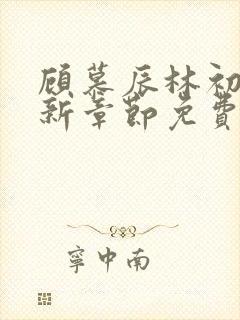 顾慕辰林初
新章节免费
宁中南